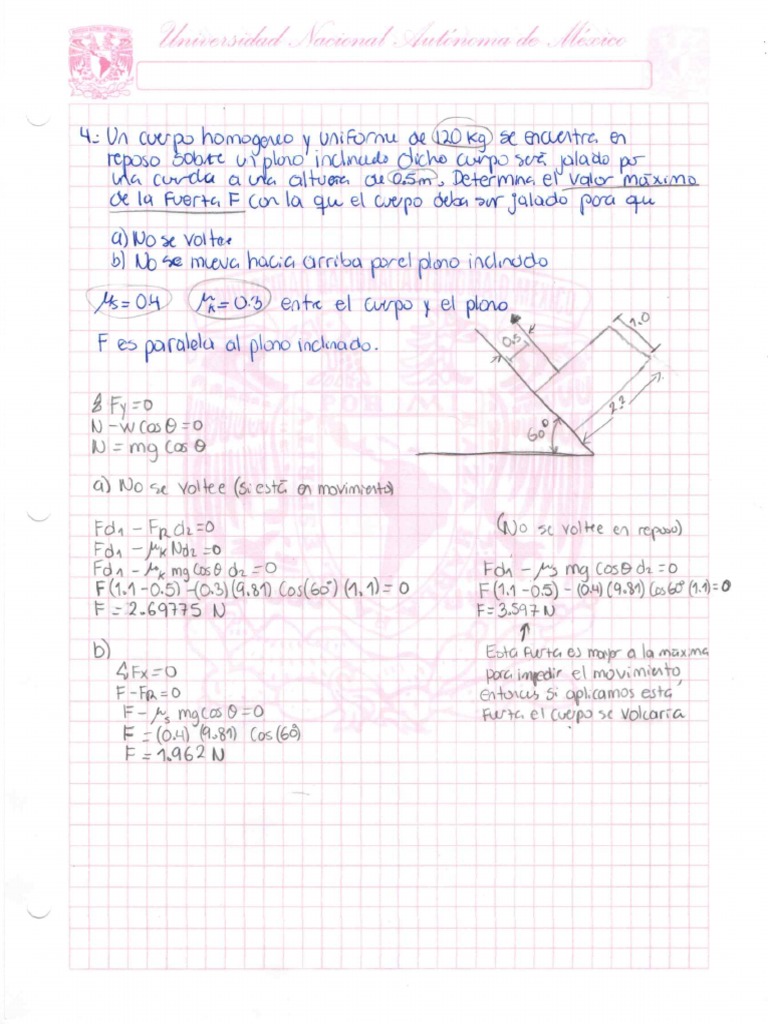 Universidad Nacional Autónoma de México
4.- Un cuerpo homogeneo y uniforme de 120 kg se encuentra en
reposo sobre un plano inclinado dicho cuerpo será jalado por
una cuerda a una altura de 0.5m. Determina el valor máximo
de la fuerza F con la que el cuerpo deba ser jalado para que
a) No se voltee
b) No se mueva hacia arriba por el plano inclinado
μs = 0.4 μk = 0.3 entre el cuerpo y el plano
F es paralela al plano inclinado.
1.0
0.5
2.2
60°
Σ Fy = 0
N - W cos θ = 0
N = mg cos θ
a) No se voltee (si está en movimiento)
Fd1 - FR d2 = 0
Fd1 - μk N d2 = 0
Fd1 - μk mg cos θ d2 = 0
F (1.1 - 0.5) - (0.3) (9.81) Cos(60°) (1.1) = 0
F = 2.69775 N
(No se voltee en reposo)
Fd1 - μs mg cos θ d2 = 0
F (1.1 - 0.5) - (0.4) (9.81) Cos 60° (1.1) = 0
F = 3.597 N
Esta fuerza es mayor a la máxima
para impedir el movimiento,
entonces si aplicamos esta
fuerza el cuerpo se volcaría
b)
Σ Fx = 0
F - FR = 0
F - μs mg cos θ = 0
F = (0.4) (9.81) Cos (60°)
F = 1.962 N